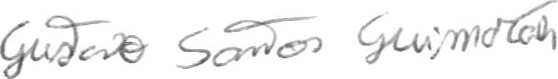 Gustavo Santos Guimarães